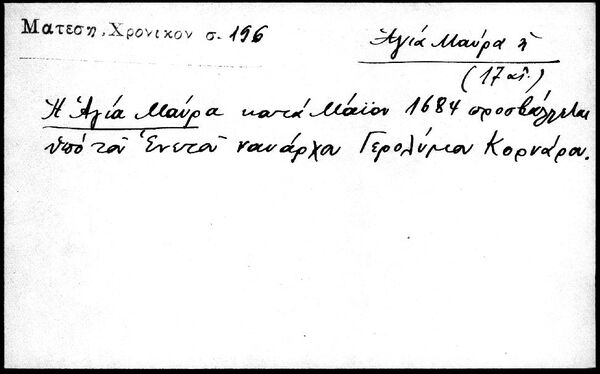 Ματεση, Χρονικον σ. 196
Ἁγία Μαύρα ἡ
(17 αἰ.)
Ἡ Ἁγία Μαύρα κατά Μάϊον 1684 προσβάλλεται
ὑπό τοῦ Ἑνετοῦ ναυάρχου Γερολύμου Κορνάρου.